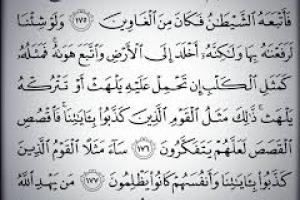 فَأَتْبَعَهُ ٱلشَّيْطَٰنُ فَكَانَ مِنَ ٱلْغَاوِينَ ١٧٥ وَلَوْ شِئْنَا
لَرَفَعْنَٰهُ بِهَا وَلَٰكِنَّهُۥٓ أَخْلَدَ إِلَى ٱلْأَرْضِ وَٱتَّبَعَ هَوَىٰهُ فَمَثَلُهُۥ
كَمَثَلِ ٱلْكَلْبِ إِن تَحْمِلْ عَلَيْهِ يَلْهَثْ أَوْ تَتْرُكْهُ
يَلْهَث ذَّٰلِكَ مَثَلُ ٱلْقَوْمِ ٱلَّذِينَ كَذَّبُوا۟ بِـَٔايَٰتِنَا فَٱقْصُصِ
ٱلْقَصَصَ لَعَلَّهُمْ يَتَفَكَّرُونَ ١٧٦ سَآءَ مَثَلًا ٱلْقَوْمُ ٱلَّذِينَ
كَذَّبُوا۟ بِـَٔايَٰتِنَا وَأَنفُسَهُمْ كَانُوا۟ يَظْلِمُونَ ١٧٧ مَن يَهْدِ ٱللَّهُ